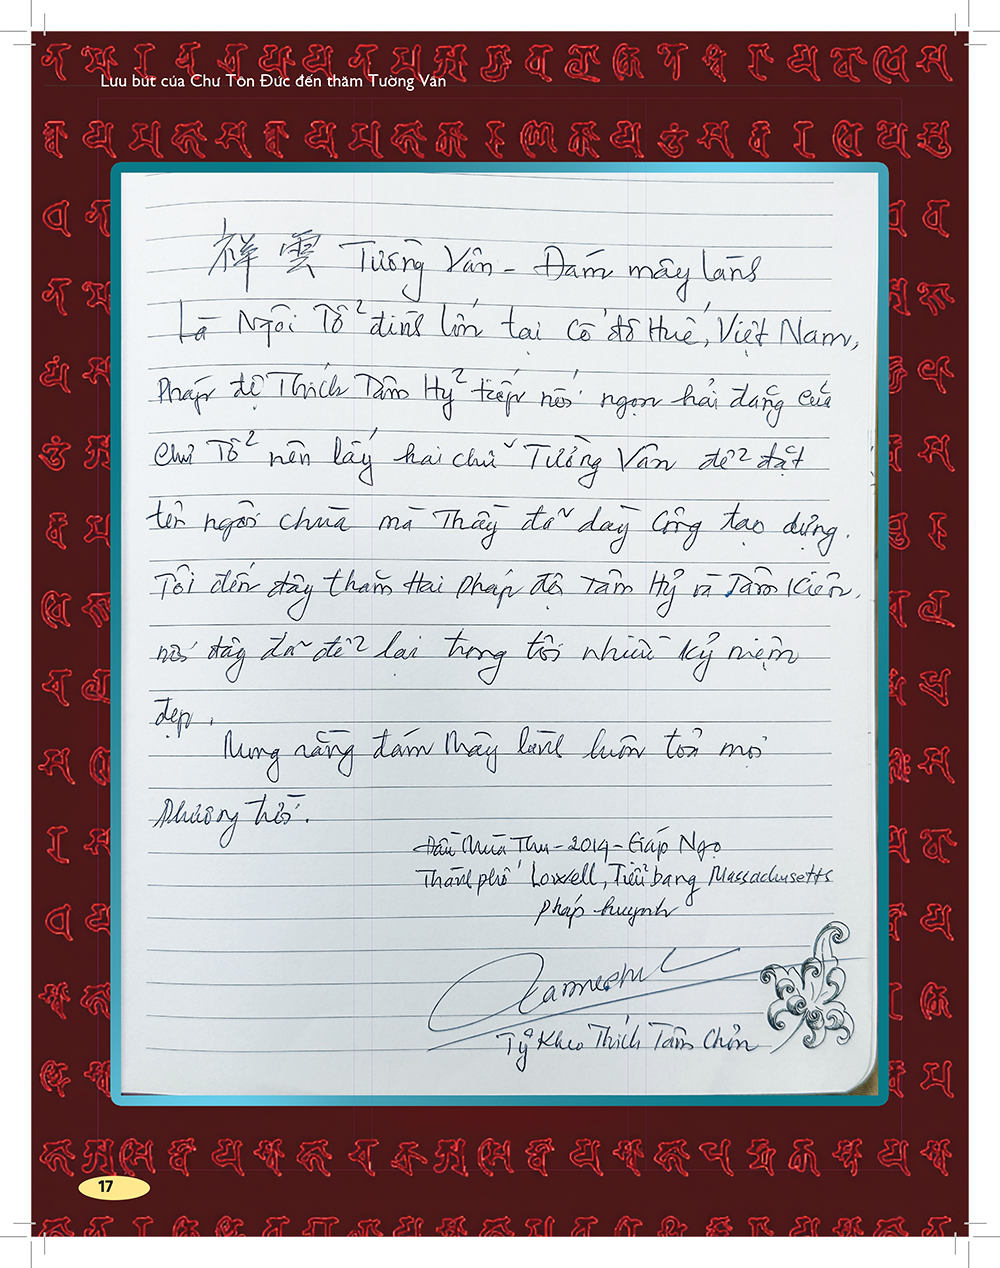 Lưu bút của Chư Tôn Đức đến thăm Tường Vân
祥雲 Tường Vân - Đám mây lành
Là Ngôi Tổ đình lớn tại Cố đô Huế, Việt Nam,
Pháp đệ Thích Tâm Hỷ tiếp nối ngọn hải đăng của
Chư Tổ nên lấy hai chữ Tường Vân để đặt
tên ngôi chùa mà Thầy đã dày công tạo dựng.
Tôi đến đây thăm Hai Pháp đệ Tâm Hỷ và Tâm Kiên,
nơi đây đã để lại trong tôi nhiều kỷ niệm
đẹp.
Mong rằng đám mây lành luôn toả mọi
phương trời.
Đầu Mùa Thu - 2014 - Giáp Ngọ
Thành phố Lowell, Tiểu bang Massachusetts
Pháp huynh
Tỷ Kheo Thích Tâm Chơn
17